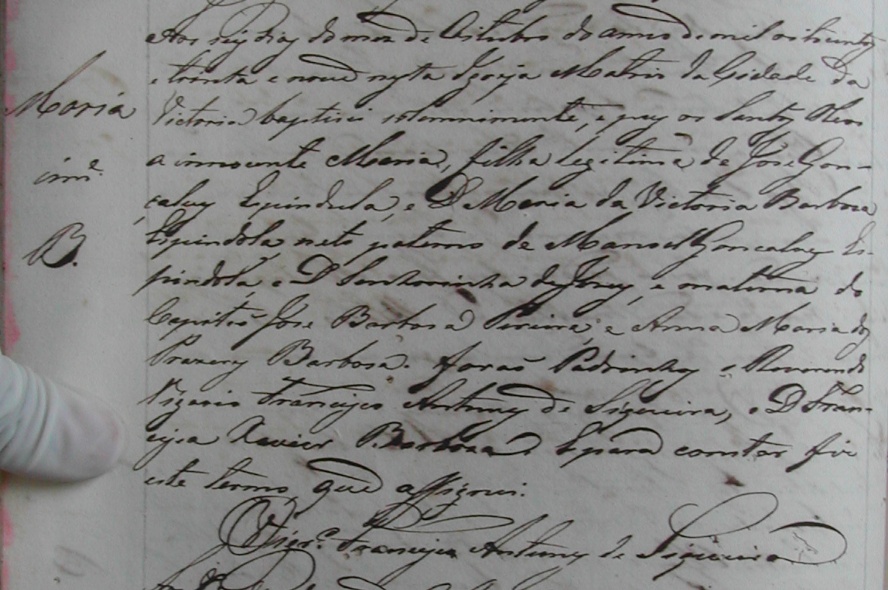 Aos seis dias do mez de Outubro do anno de mil oitocentos
e trinta e nove nesta Igreja Matris da Cidade da
Maria
Victoria baptisei solemnimente, e puz os Santos Oleos
a innocente Maria, filha legitima de José Gon-
inn.e
çalves Espindula, e D. Maria da Victoria Barbosa
B.
Espindola neta paterna de Manoel Gonçalves Es-
pindola, e D. Senhorinha de Jesus, e materna do
Capitão José Barbosa Pereira, e Anna Maria dos
Prazeres Barbosa. forão Padrinhos o Reverendo
Vigario Francisco Antunes de Siqueira, e D. Fran-
cisca Xavier Barbosa. E para constar fiz
este termo que assignei.
Vigr.o Francisco Antunes de Siqueira